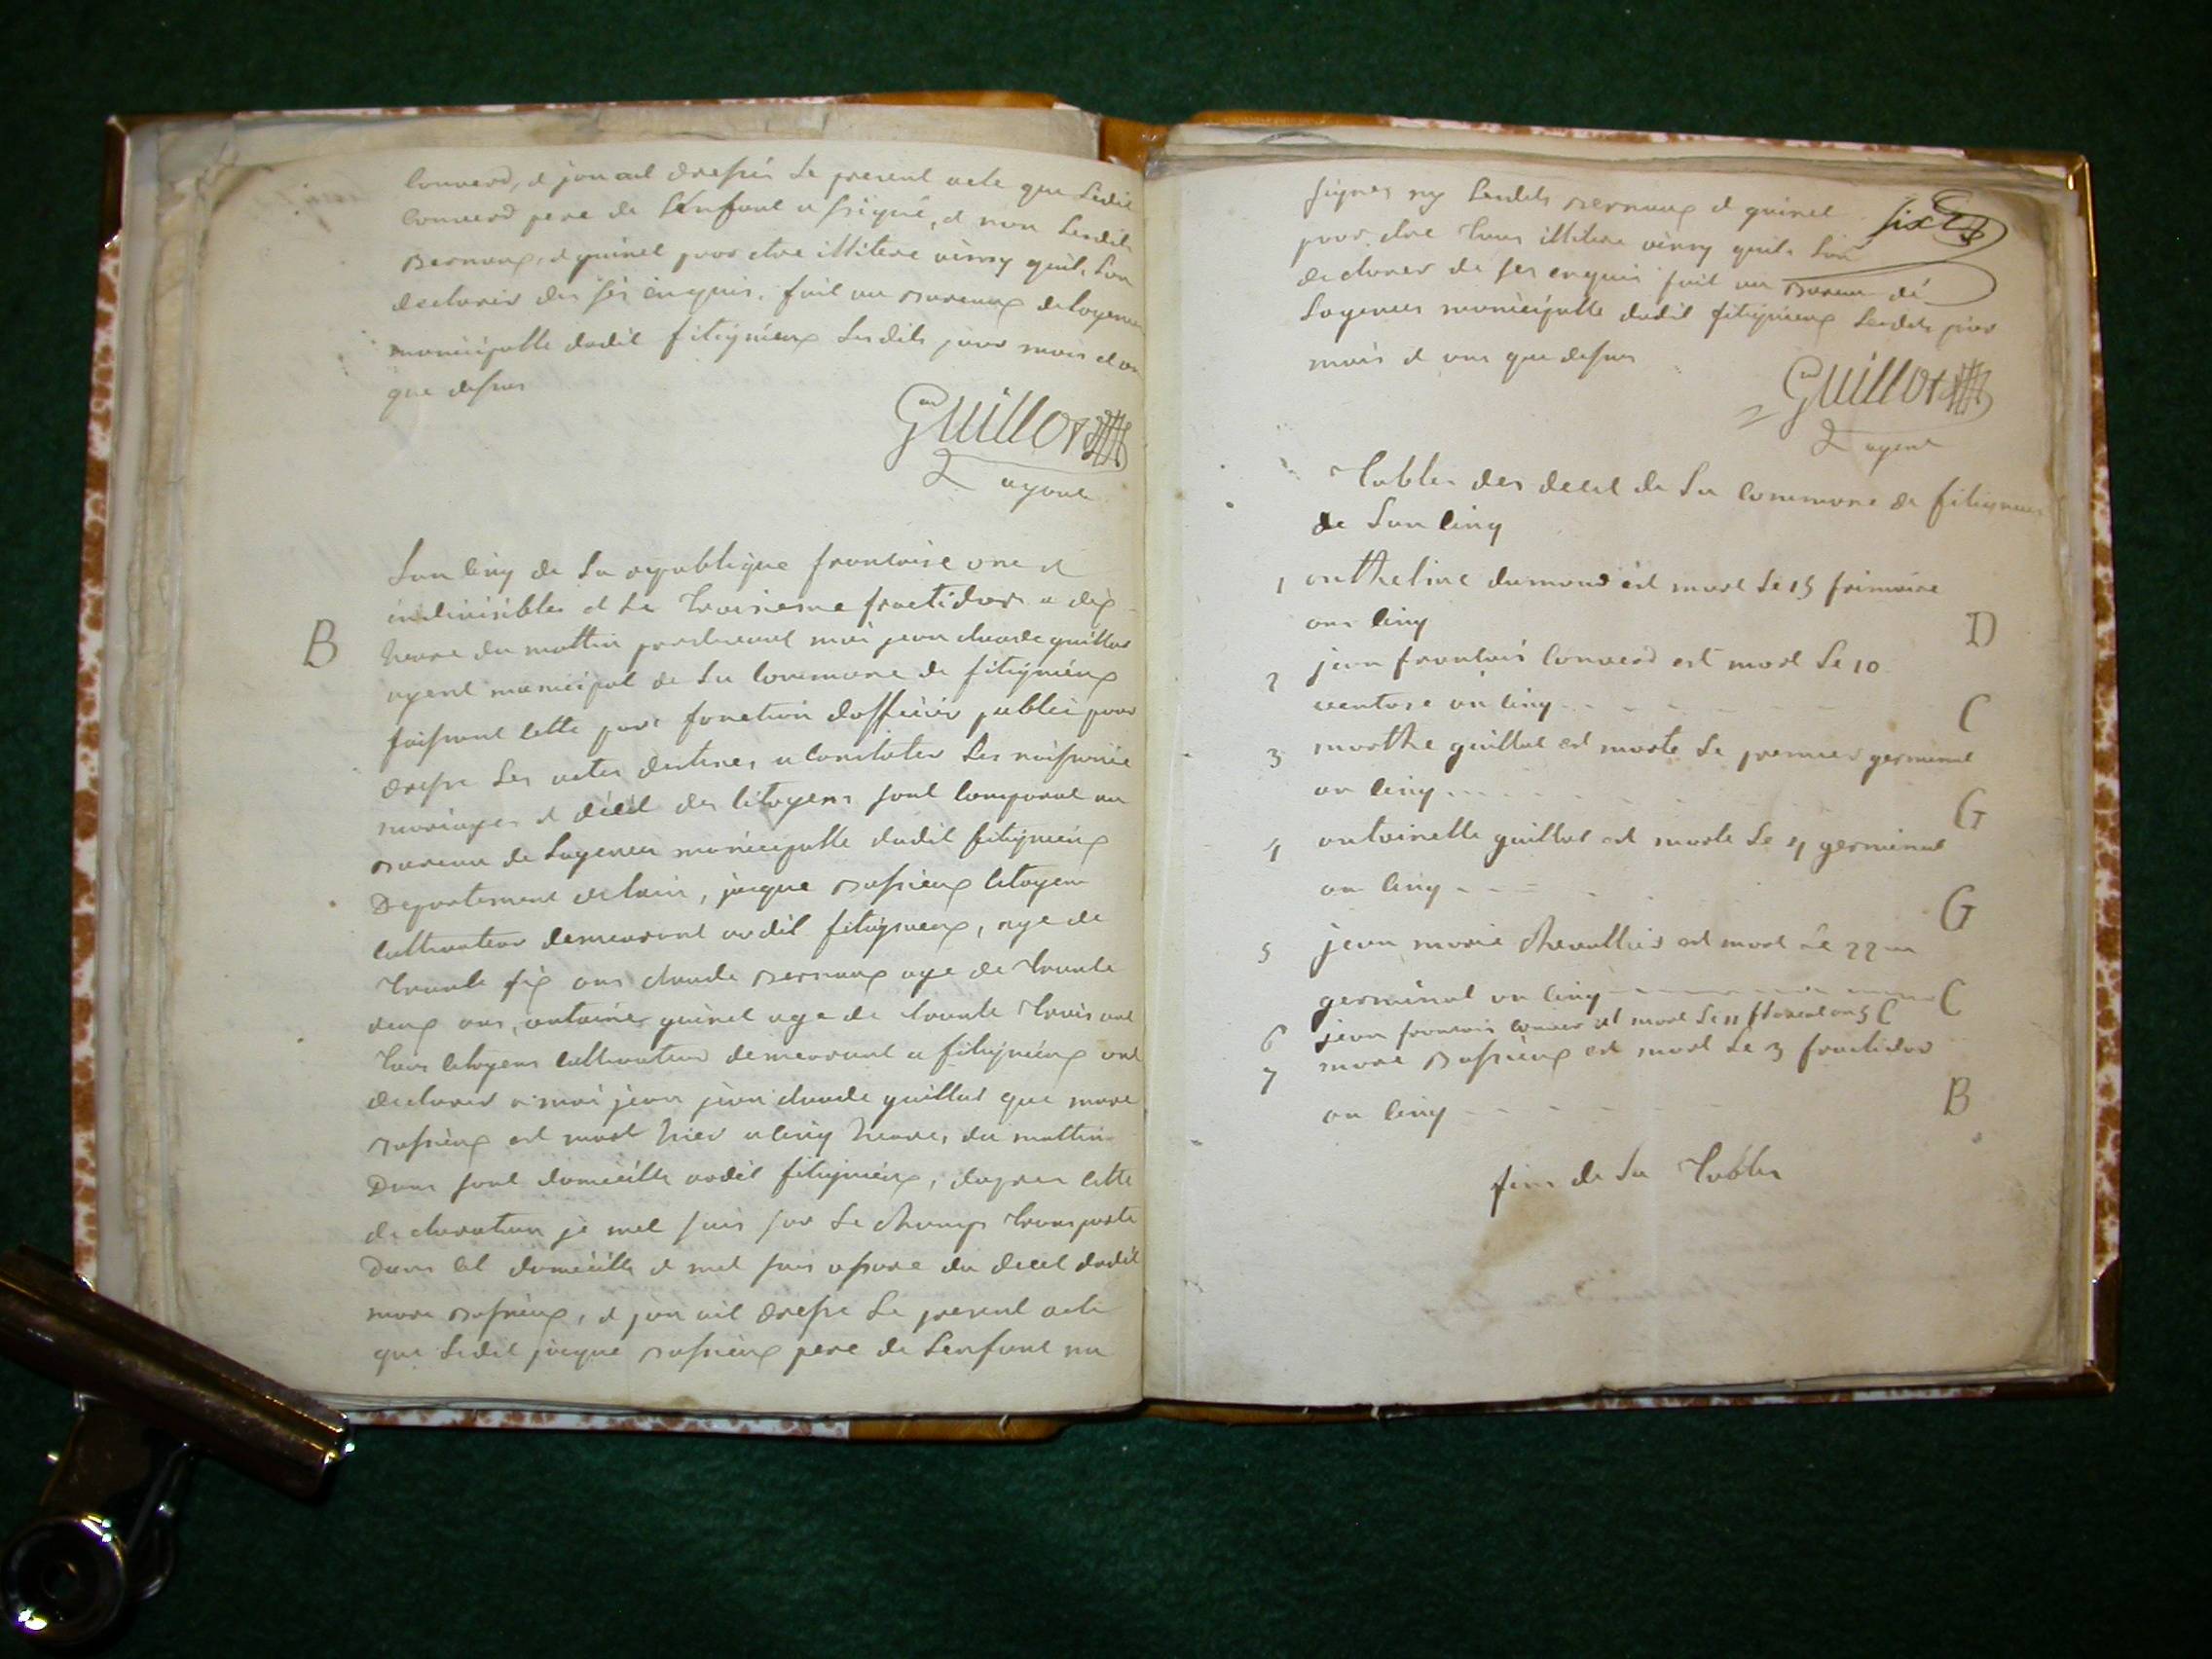 Converd, et jon ait dressés le present acte que Ledit
Converd pere de Lenfant a signé, et non Lesdits
Bernoux, et guinet pour etre illitere ainsy quils Lon
declarés des ses enquis, fait au Bureaux delagence
municipalle dudit fitignieux Lesdits jour mois et an
que dessus
Guillot
agent
Lan cinq de La republique francoise one et
indivisibles et Le troisieme fructidor a dix
B
heure du mattin pardevant moi jean claude guillot
agent municipal de La commune de fitignieux
faissant cette part fonction dofficier public pour
dresse Les actes destines a constater Les naissance
mariages et décét des citoyens sont comparut au
Bureau de Lagence municipalle dudit fitignieux
Departement de lain, jacque Bassieux citoyen
cultivateur demeurant audit fitignieux, age de
trente six ans claude Bernoux age de trente
deux ans, antoine guinet age de trente trois ans
tous citoyens cultivateur demeurant a fitignieux ont
declarer a moi jean jean claude guillot que marc
Bassieux est mort hier a cinq heures du mattin
Dans sont domicille audit fitignieux, dapres cette
declaration je met suis sur Le champ transporte
Dans cet domicille et met suis assure du decet dudit
marc Bassieux, et jon ait dresse Le present acte
que Ledit jacque Bassieux pere de Lenfant na
signer ny Lesdits Bernoux et guinet
sixt
pour etre tous illitere ainsy quils Lon
declarer de ses enquis fait au Bureau dé
Lagences municipalle dudit fitignieux Lesdits jour
mois et ans que dessus
Guillot
agent
tables des decet de La commune de fitignieux
de Lan cinq
1 anthelme dumond est mort Le 15 frimaire
ans cinq
D
2 jean francois Converd est mort Le 10
ventose an cinq
C
3 marthe guillot est morte Le premier germinal
an cinq
G
4 antoinette guillot est morte Le 4 germinal
an cinq
G
5 jean marie chevallier est mort Le 22 
germinal an cinq C
6 jean francois conver est mort Le 11 floreal an 5 C
7 marc Bassieux est mort Le 3 fructidor
an cinq
B
fin de La tables